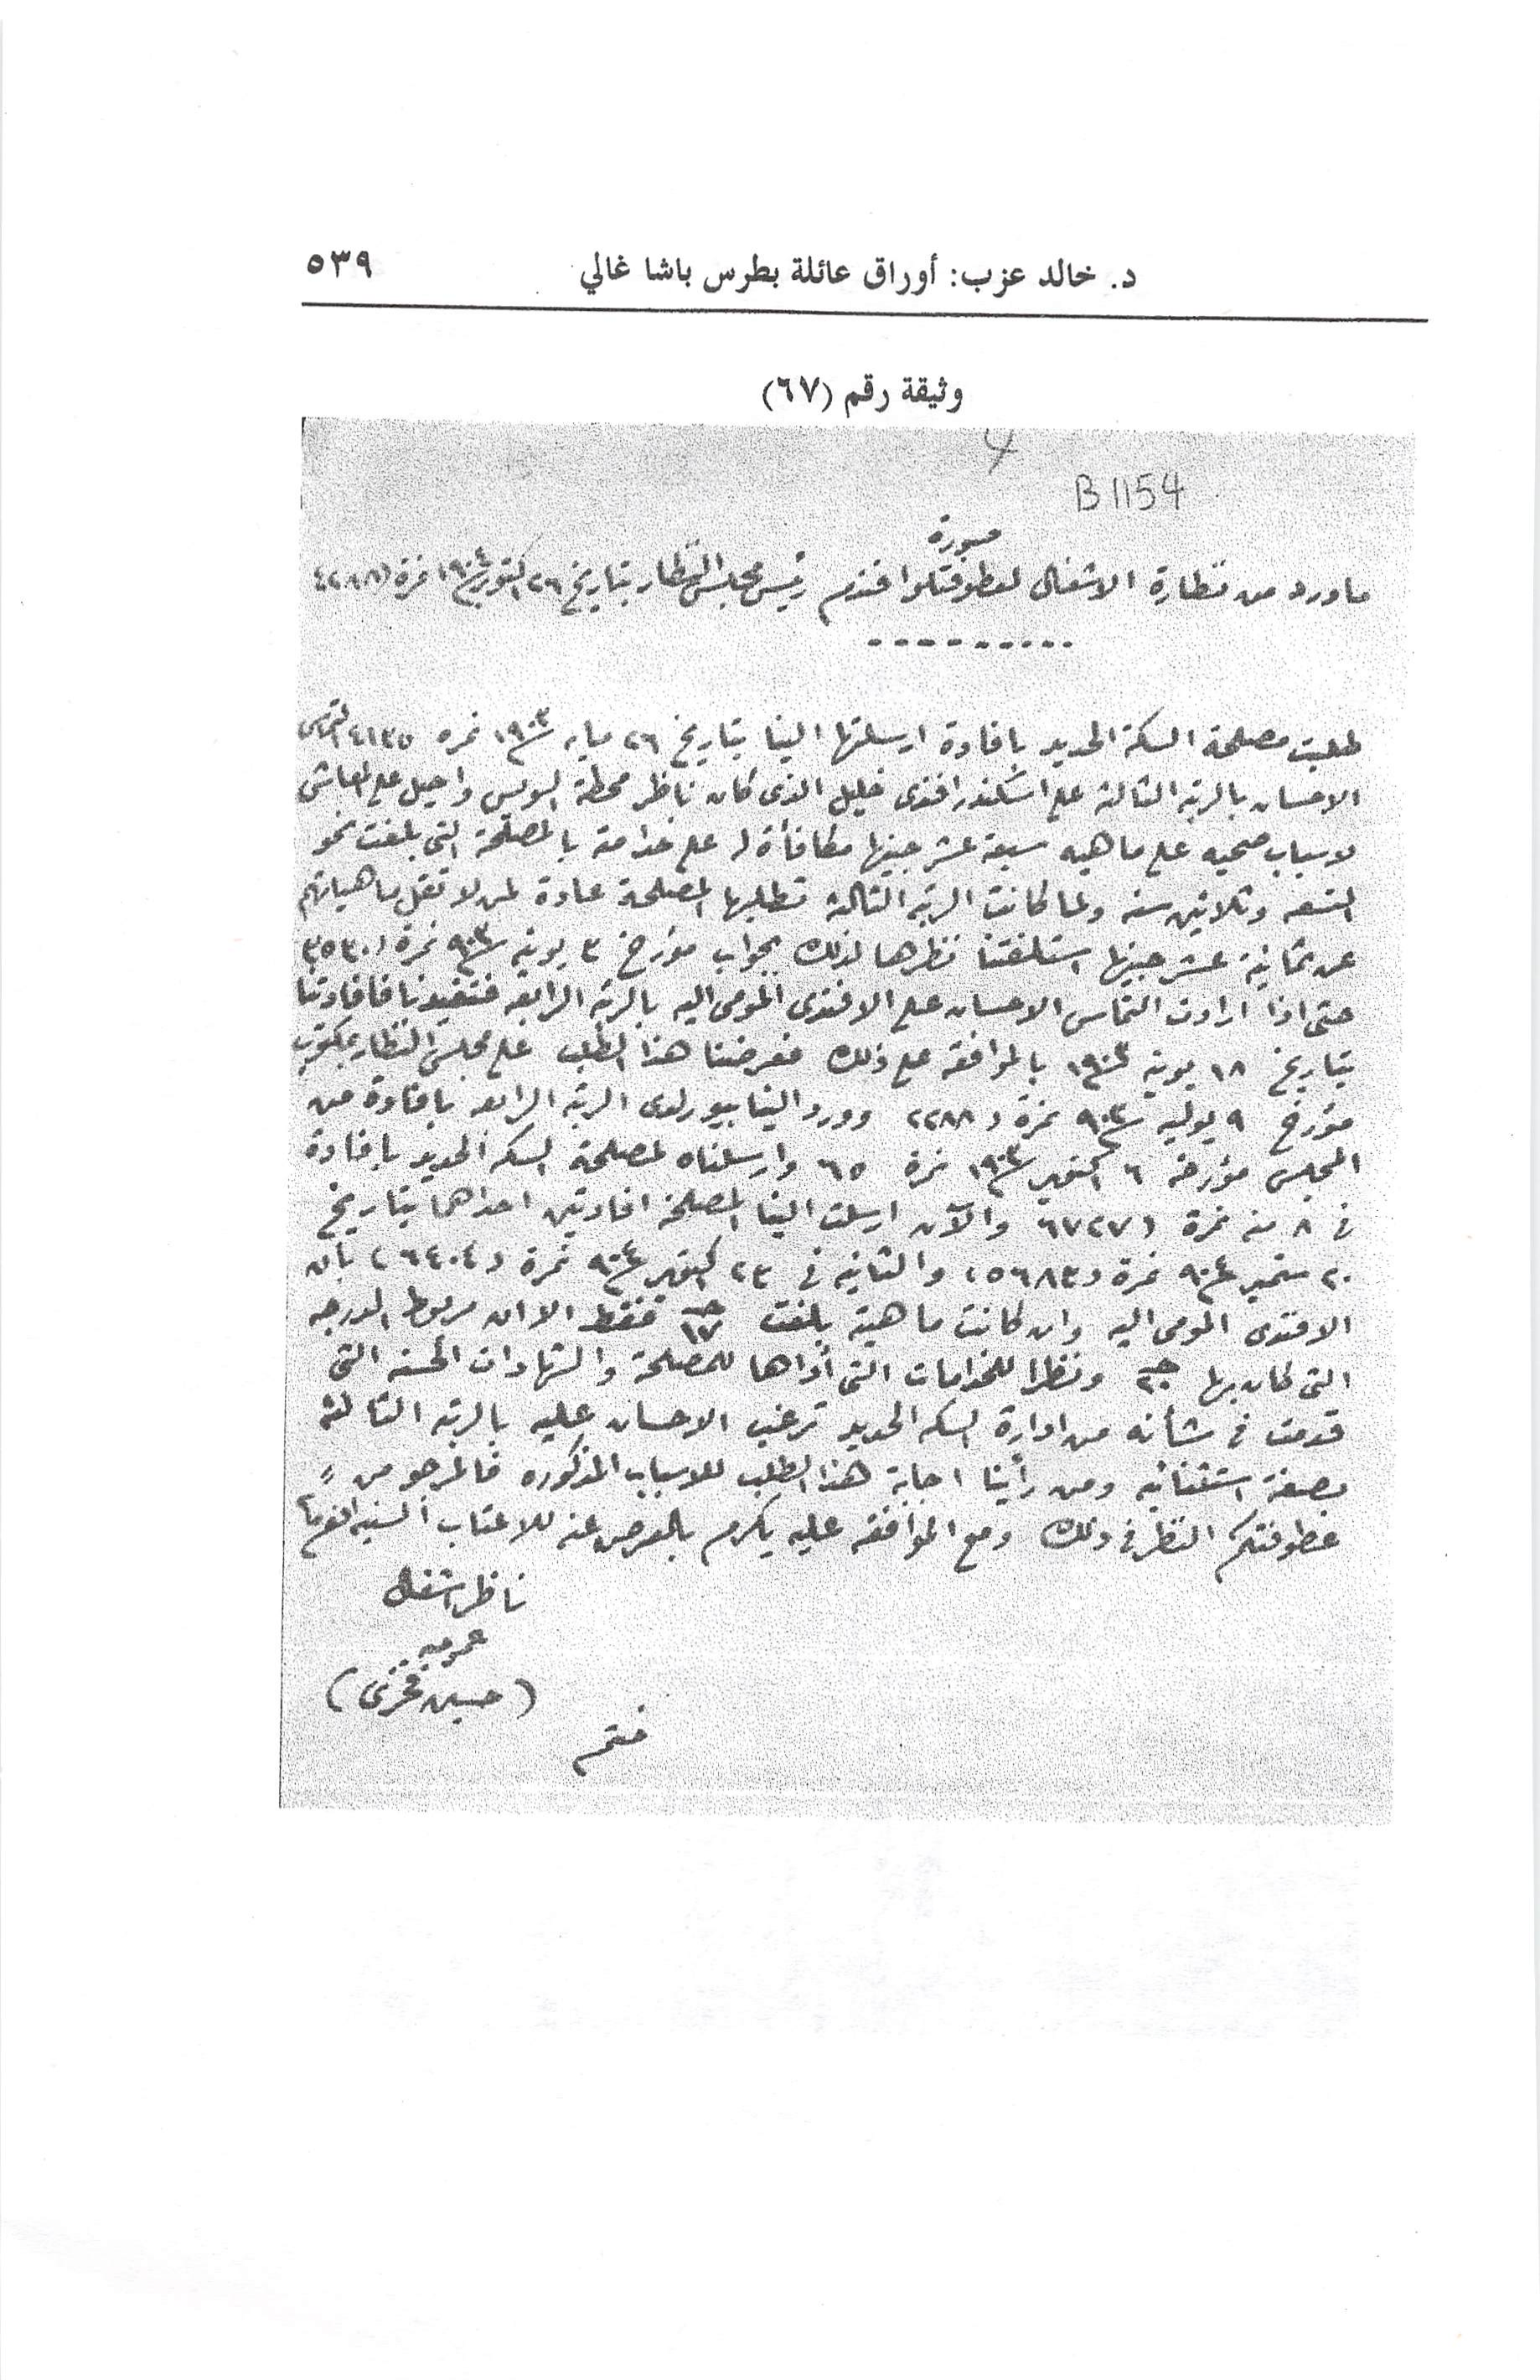 د. خالد عزب: أوراق عائلة بطرس باشا غالي ٥٣٩
وثيقة رقم (٦٧)
B 1154
صورة
ما ورد من نظارة الاشغال لعطوفتلو افندم رئيس مجلس النظار بتاريخ ٢٦ اكتوبر سنة ١٩٠٤ نمرة
طلبت مصلحة السكة الحديد بافادة ارسلتها الينا بتاريخ ٢٦ مايه سنة ١٩٠٣ نمره ٤١٣٥ التماس
الاحسان بالرتبه الثالثة على اسكندر افندى خليل الذى كان ناظر محطة السويس واحيل على المعاش
لاسباب صحيه على ماهيه سبعة عشر جنيها مكافأة له على خدامته بالمصلحة التى بلغت نحو
التسعه وثلاثين سنه ولما كانت الرتبه الثالثة تطلبها المصلحة عادة لمن لا تقل ماهياتهم
عن ثمانية عشر جنيها استلفتنا نظرها لذلك بجواب مؤرخ ٣ يونيه سنة ٩٠٣ نمرة (٣٥٣٠)
حتى اذا ارادت التماس الاحسان على الافندى المومى اليه بالرتبه الرابعه فتفيدنا فافادتنا
بتاريخ ١٨ يونية سنة ١٩٠٣ بالموافقه على ذلك فعرضنا هذا الطلب على مجلس النظار بمكتوب
مؤرخ ٩ يوليه سنة ٩٠٣ نمرة (٢٢٨٨) وورد الينا بيورلدى الرتبه الرابعه بافادة من
المجلس مؤرخة ٦ اكتوبر سنة ١٩٠٣ نمرة ٦٥ وارسلناه لمصلحة السكه الحديد بافادة
فى ٨ منه نمرة (٦٧٢٧) والآن ارسلت الينا المصلحة افادتين احداهما بتاريخ
٢٠ سبتمبر سنة ٩٠٤ نمرة (٥٦٨٣) والثانيه فى ٢٣ اكتوبر سنة ٩٠٤ نمرة (٦٤٠٤) بأن
الافندى المومى اليه وان كانت ماهيته بلغت ١٧ جـ فقط الا ان مربوط الدرجه
التى كان بها ٢٠ جـ ونظرا للخدامات التى أداها للمصلحة والشهادات الحسنه التى
قدمت فى شأنه من ادارة السكه الحديد ترغب الاحسان عليه بالرتبه الثالثة
بصفة استثنائيه ومن رأينا اجابة هذا الطلب للاسباب المذكوره فالمرجو من
عطوفتكم النظر فى ذلك ومع الموافقه عليه يكرم بالعرض عنه للاعتاب السنيه افندم
ناظر اشغال
عموميه
(حسين فخرى)
ختم